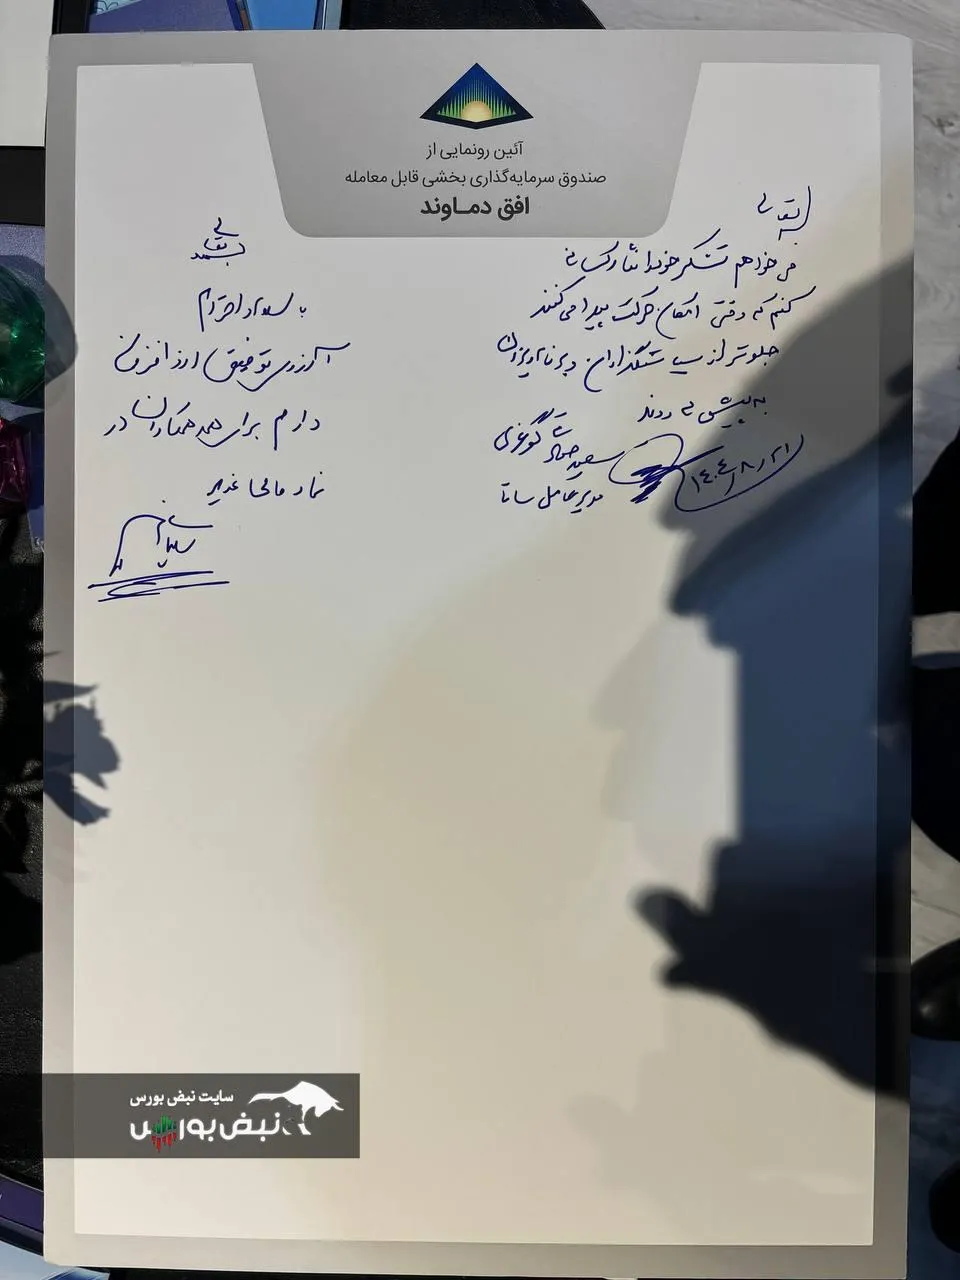 آئین رونمایی از
صندوق سرمایه‌گذاری بخشی قابل معامله
افق دماوند
می‌خواهم تشکر خود را نثار کسانی
کنم که وقتی امکان حرکت پیدا می‌کنند
جلوتر از سیاستگذاران و برنامه‌ریزان
به پیش می‌روند
سعید
مدیرعامل ساتا
۱۴۰۴/۸/۲۱
با سلام و احترام
آرزوی توفیق روزافزون
دارم برای همه همکاران در
نماد مالی غدیر
سایت نبض بورس
نبض بورس